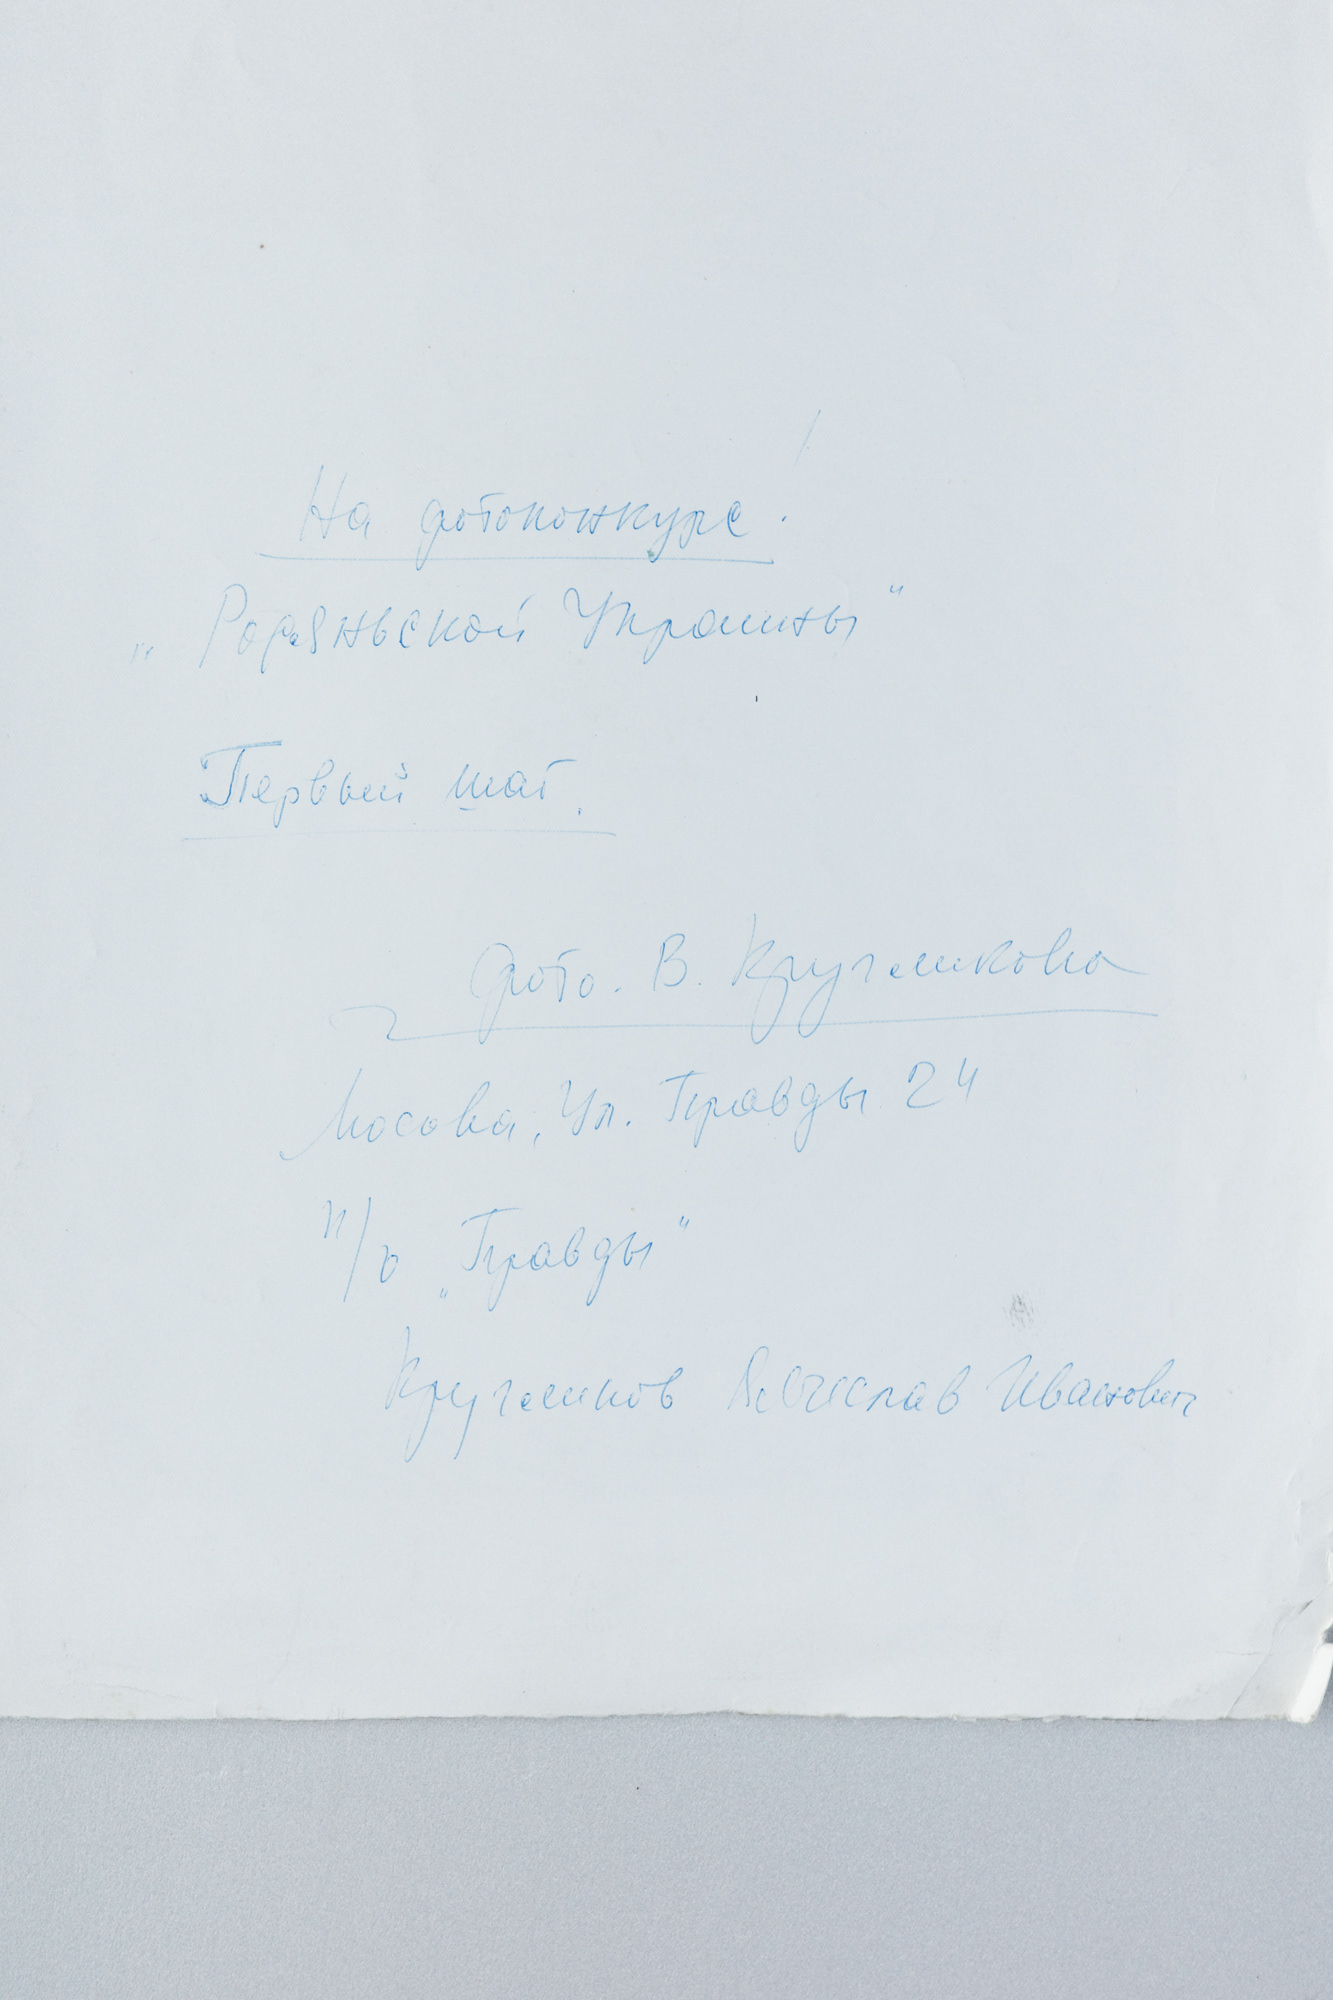 На фотоконкурс!
"Родяньской Украины"
Первый шаг.
фото. В. Кругликова
Москва, Ул. Правды 24
п/о "Правды"
Кругликов Вячеслав Иванович